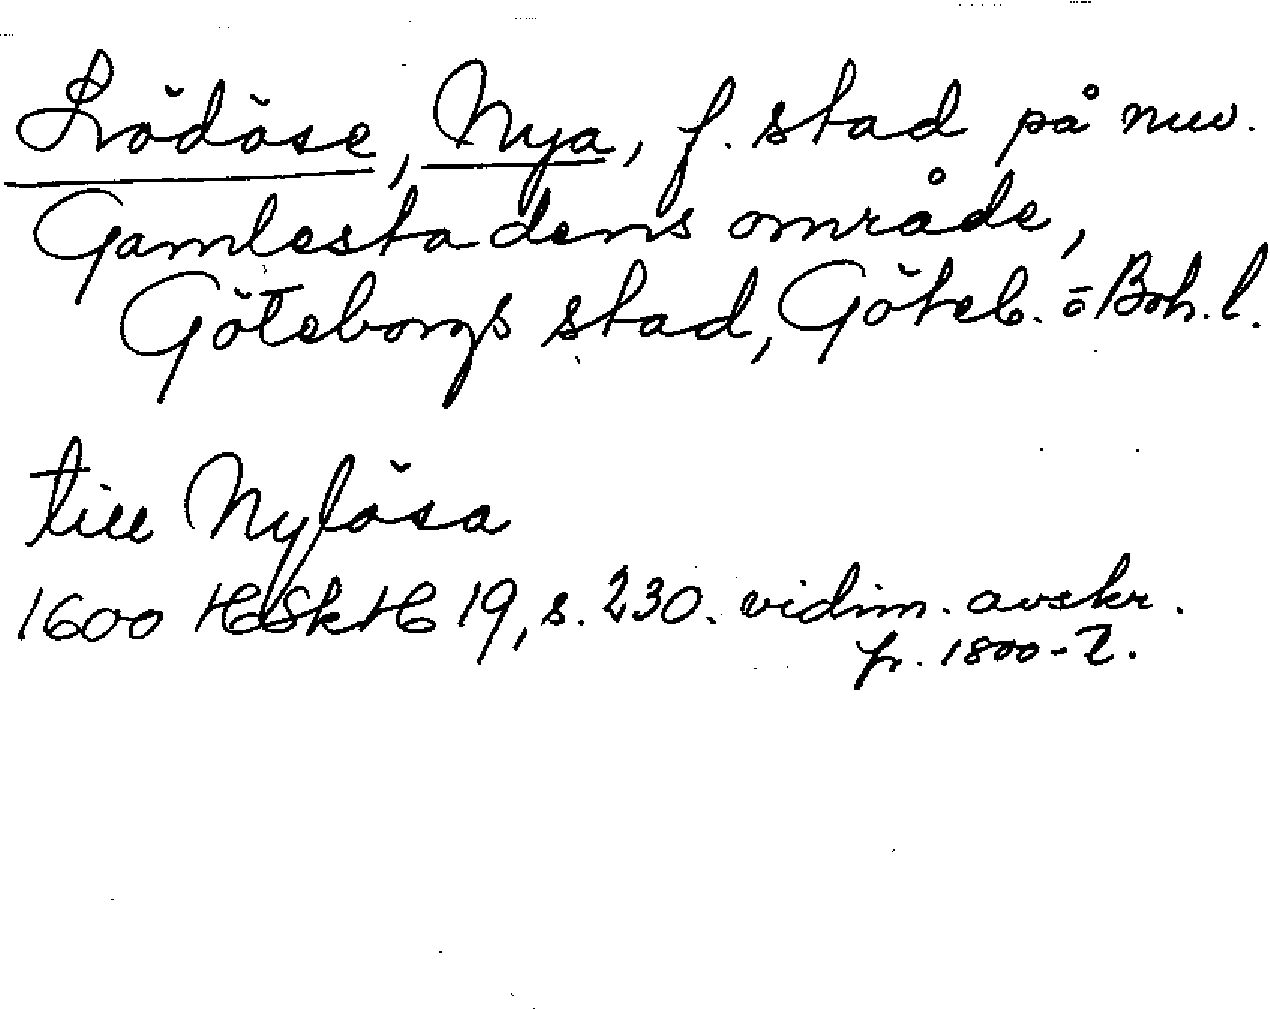 Lödöse, Nya, f. stad på nuv.
Gamlestadens område,
Göteborgs stad, Göteb. o Boh. l.
till Nylösa
1600 HSkH 19, s. 230. vidim. avskr.
fr. 1800-t.